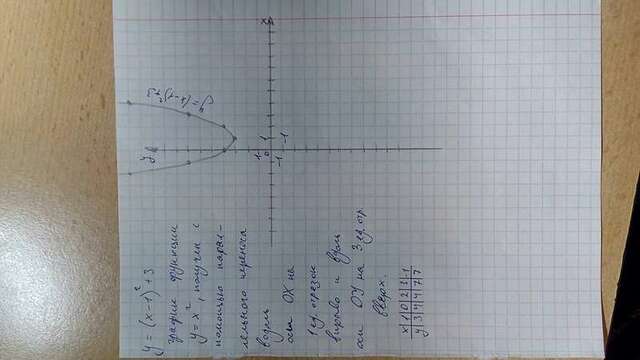 y = (x-1)² + 3
график функции
y = x², получен с
помощью парал-
лельного переноса
вдоль
оси OX на
1 ед. отрезок
вправо и вдоль
оси OY на 3 ед. отр.
вверх.
x 1 0 2 3 -1
y 3 4 4 7 7
y
x
y=(x-1)²+3
1
0
1
-1
-1